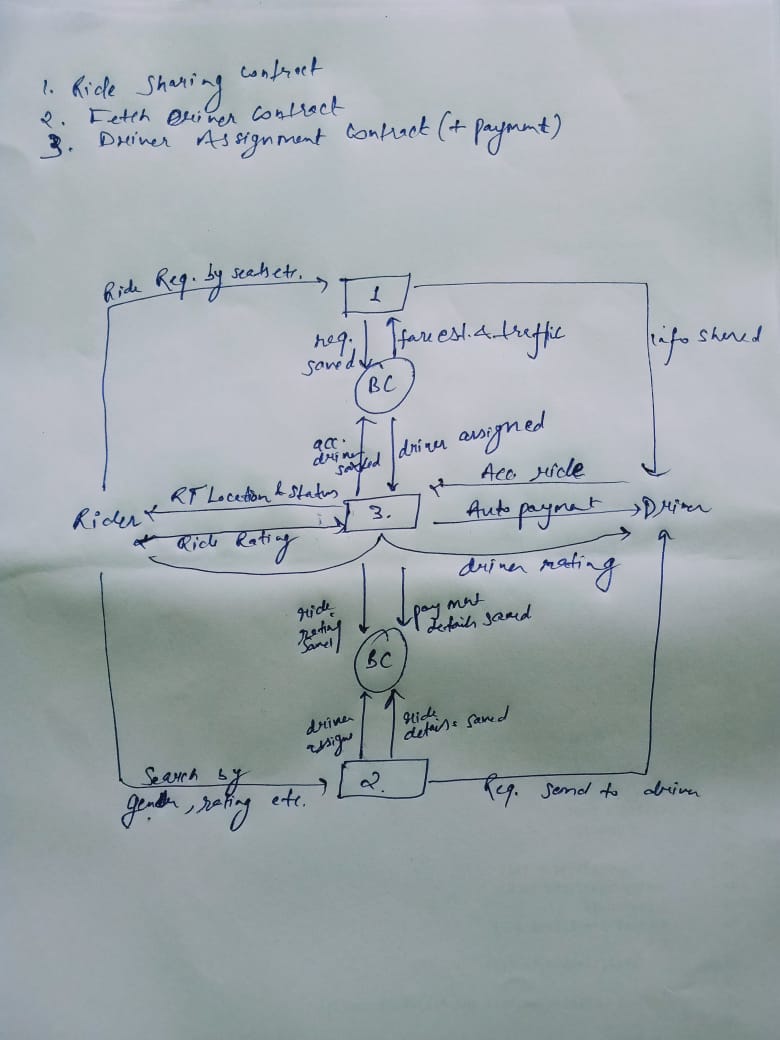 1. Ride Sharing contract
2. Fetch Driver Contract
3. Driver Assignment Contract (+ payment)
Ride Req. by seats etc.
1
req. saved
fare est. & traffic
info shared
BC
acc. driver
driver assigned
Acc. ride
RT Location & Status
Rider
3.
Auto payment
Driver
Ride Rating
driver rating
ride rating saved
payment details saved
BC
driver assign
ride details saved
Search by
gender, rating etc.
2.
Req. send to driver